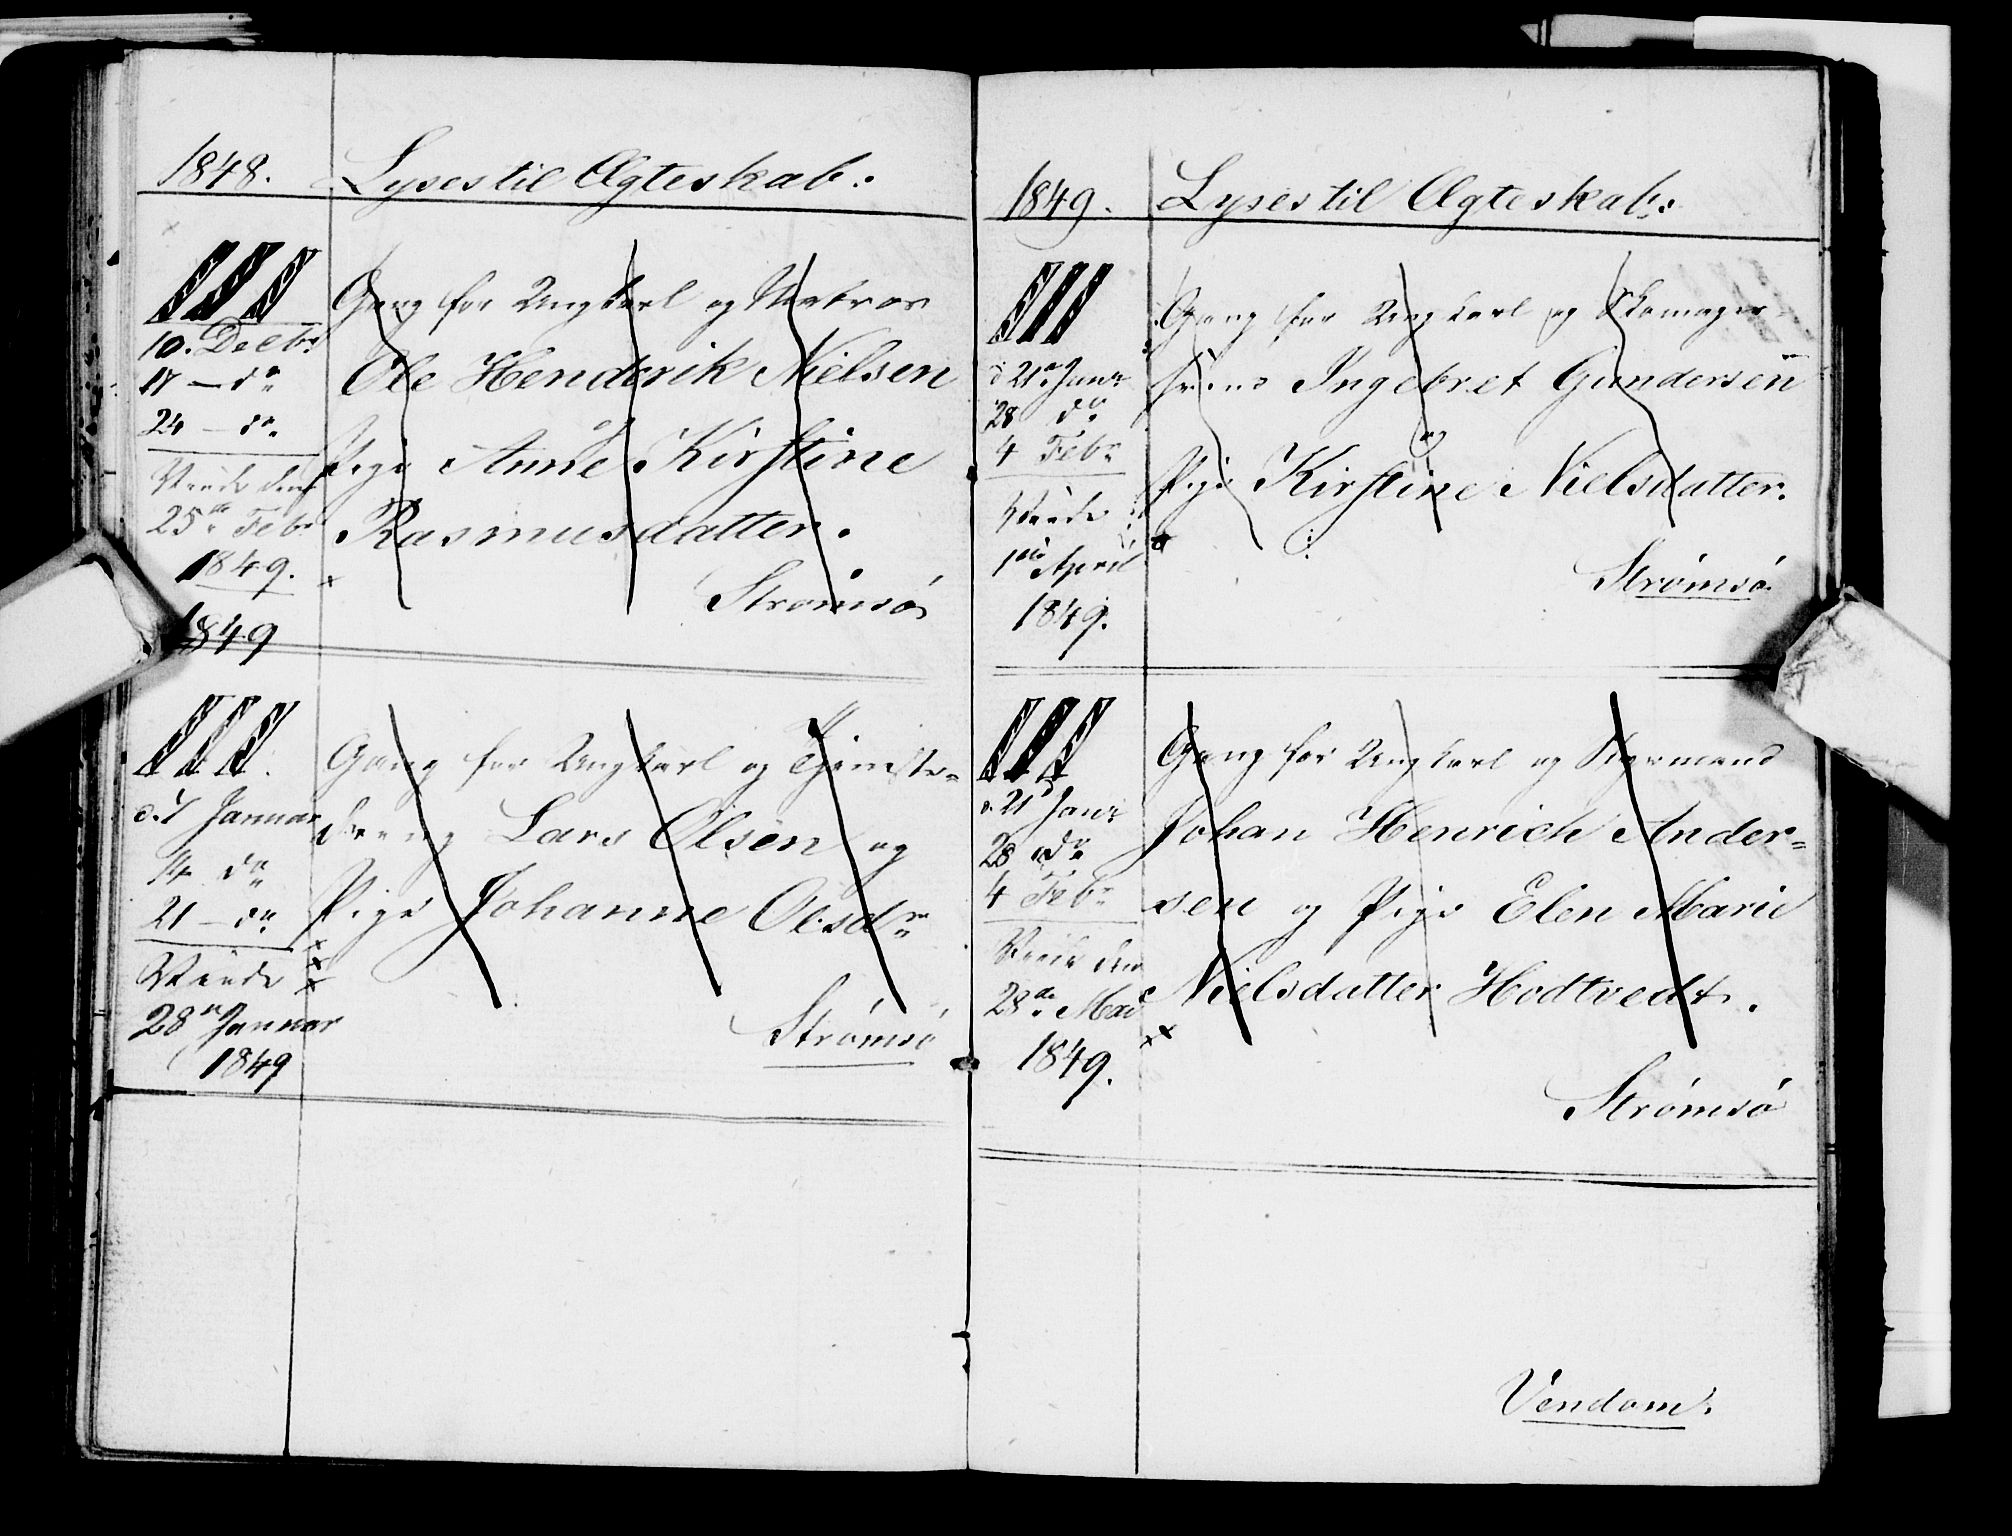 1848. Lyses til Ægteskab:
III
10. Decbr
17 — do
24 — do
Viede den
25de Feb.
1849.
Gang for Ungkarl og Matros
Ole Henderik Nielsen
og
Pige Anne Kirstine
Rasmusdatter.
Strømsø
1849
III
d. 7 Januar
14 do
21 — do
Viede
28de Januar
1849
Gang for Ungkarl og Tjeneste-
dreng Lars Olsen og
Pige Johanne Olsdr
Strømsø
1849. Lyses til Ægteskab:
III
d 21de Janr
28 do
4 Febr
Viede
1ste April
1849.
Gang for Ungkarl og Skomager
svend Ingebret Gundersen
og
Pige Kirstine Nielsdatter.
Strømsø
III
d. 21 Janr
28 do
4 Febr
Viede den
28de Mai
1849.
Gang for Ungkarl og Styrmand
Johan Henrich Ander-
sen og Pige Elen Marie
Nielsdatter Hodtvedt.
Strømsø
Vendom.